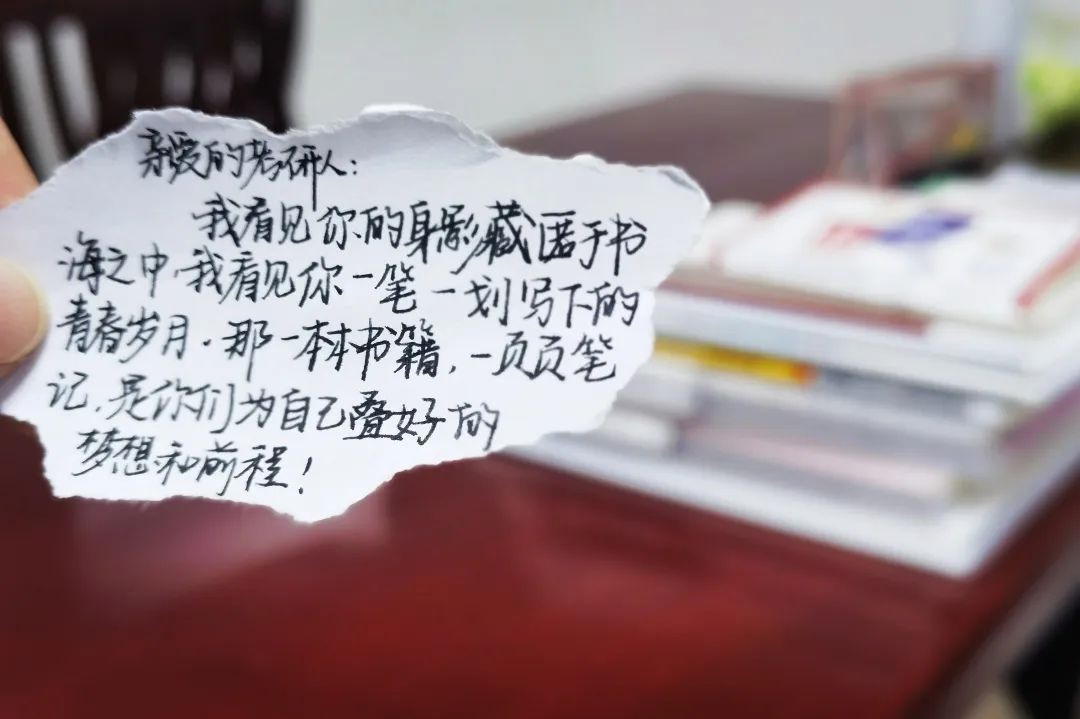 亲爱的考研人：
我看见你的身影藏匿于书
海之中.我看见你一笔一划写下的
青春岁月.那一本本书籍,一页页笔
记,是你们为自己叠好的
梦想和前程!